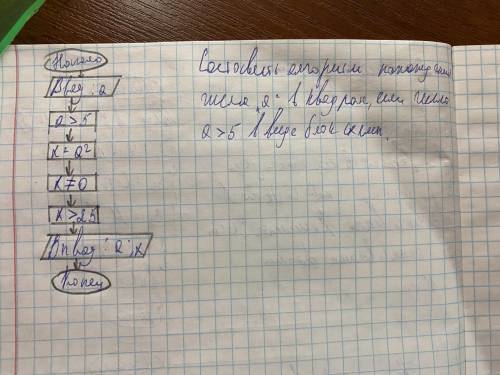 Начало
Ввод: a
a > 5
x = a²
x ≠ 0
x > 25
Вывод: a, x
Конец
Составить алгоритм нахождения
числа "a" в квадрат, если число
a > 5 в виде блок схемы.